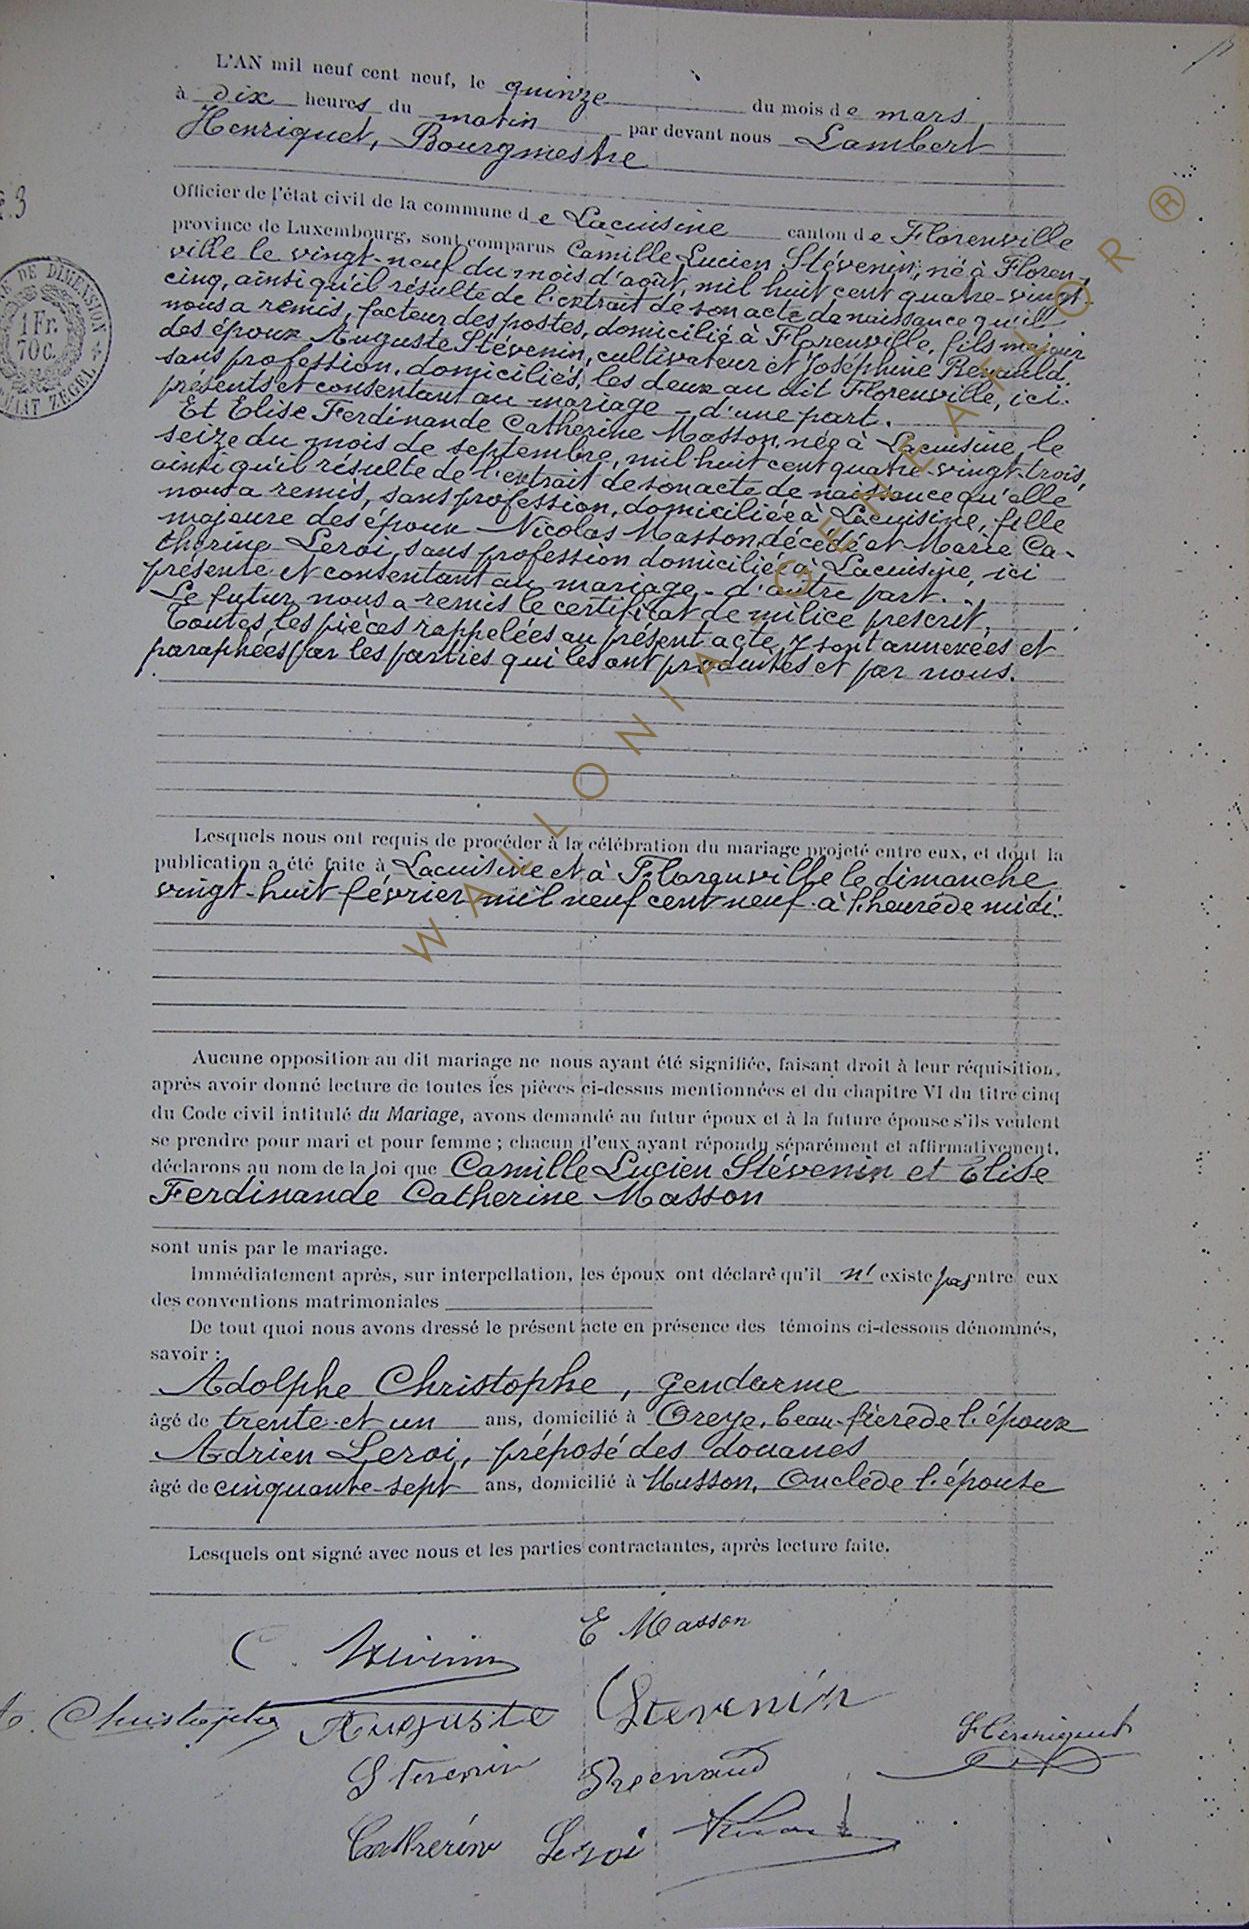 L'AN mil neuf cent neuf, le quinze du mois de mars
à dix heures du matin par devant nous Lambert
Henriquet, Bourgmestre
Officier de l'état civil de la commune de Lacuisine canton de Florenville
province de Luxembourg, sont comparus Camille Lucien Stévenin, né à Floren-
ville le vingt-neuf du mois d'août, mil huit cent quatre-vingt
cinq, ainsi qu'il résulte de l'extrait de son acte de naissance qu'il
nous a remis, facteur des postes, domicilié à Florenville, fils majeur
des époux Auguste Stévenin, cultivateur et Joséphine Renauld,
sans profession, domiciliés, les deux au dit Florenville, ici
présents et consentant au mariage - d'une part.
Et Elise Ferdinande Catherine Masson, née à Lacuisine, le
seize du mois de septembre, mil huit cent quatre-vingt-trois,
ainsi qu'il résulte de l'extrait de son acte de naissance qu'elle
nous a remis, sans profession, domiciliée à Lacuisine, fille
majeure des époux Nicolas Masson, décédé et Marie Ca-
therine Leroi, sans profession domicilié à Lacuisine, ici
présente et consentant au mariage - d'autre part.
Le futur nous a remis le certificat de milice prescrit.
Toutes les pièces rappelées au présent acte, y sont annexées et
paraphées par les parties qui les ont produites et par nous.
Lesquels nous ont requis de procéder à la célébration du mariage projeté entre eux, et dont la
publication a été faite à Lacuisine et à Florenville le dimanche
vingt-huit février mil neuf cent neuf à l'heure de midi.
Aucune opposition au dit mariage ne nous ayant été signifiée, faisant droit à leur réquisition,
après avoir donné lecture de toutes les pièces ci-dessus mentionnées et du chapitre VI du titre cinq
du Code civil intitulé du Mariage, avons demandé au futur époux et à la future épouse s'ils veulent
se prendre pour mari et pour femme ; chacun d'eux ayant répondu séparément et affirmativement,
déclarons au nom de la loi que Camille Lucien Stévenin et Elise
Ferdinande Catherine Masson
sont unis par le mariage.
Immédiatement après, sur interpellation, les époux ont déclaré qu'il n' existe pas entre eux
des conventions matrimoniales
De tout quoi nous avons dressé le présent acte en présence des témoins ci-dessous dénommés,
savoir :
Adolphe Christophe, gendarme
âgé de trente-et un ans, domicilié à Oreye, beau-frère de l'époux
Adrien Leroi, préposé des douanes
âgé de cinquante-sept ans, domicilié à Musson, Oncle de l'épouse
Lesquels ont signé avec nous et les parties contractantes, après lecture faite.
E Masson
C. Stévenin
A. Christophe Auguste Stevenin
LHenriquet
Stevenin Renaud
Catherine Leroi
1 Fr. 70 c.
WALLONIA GENEALOGOR ®